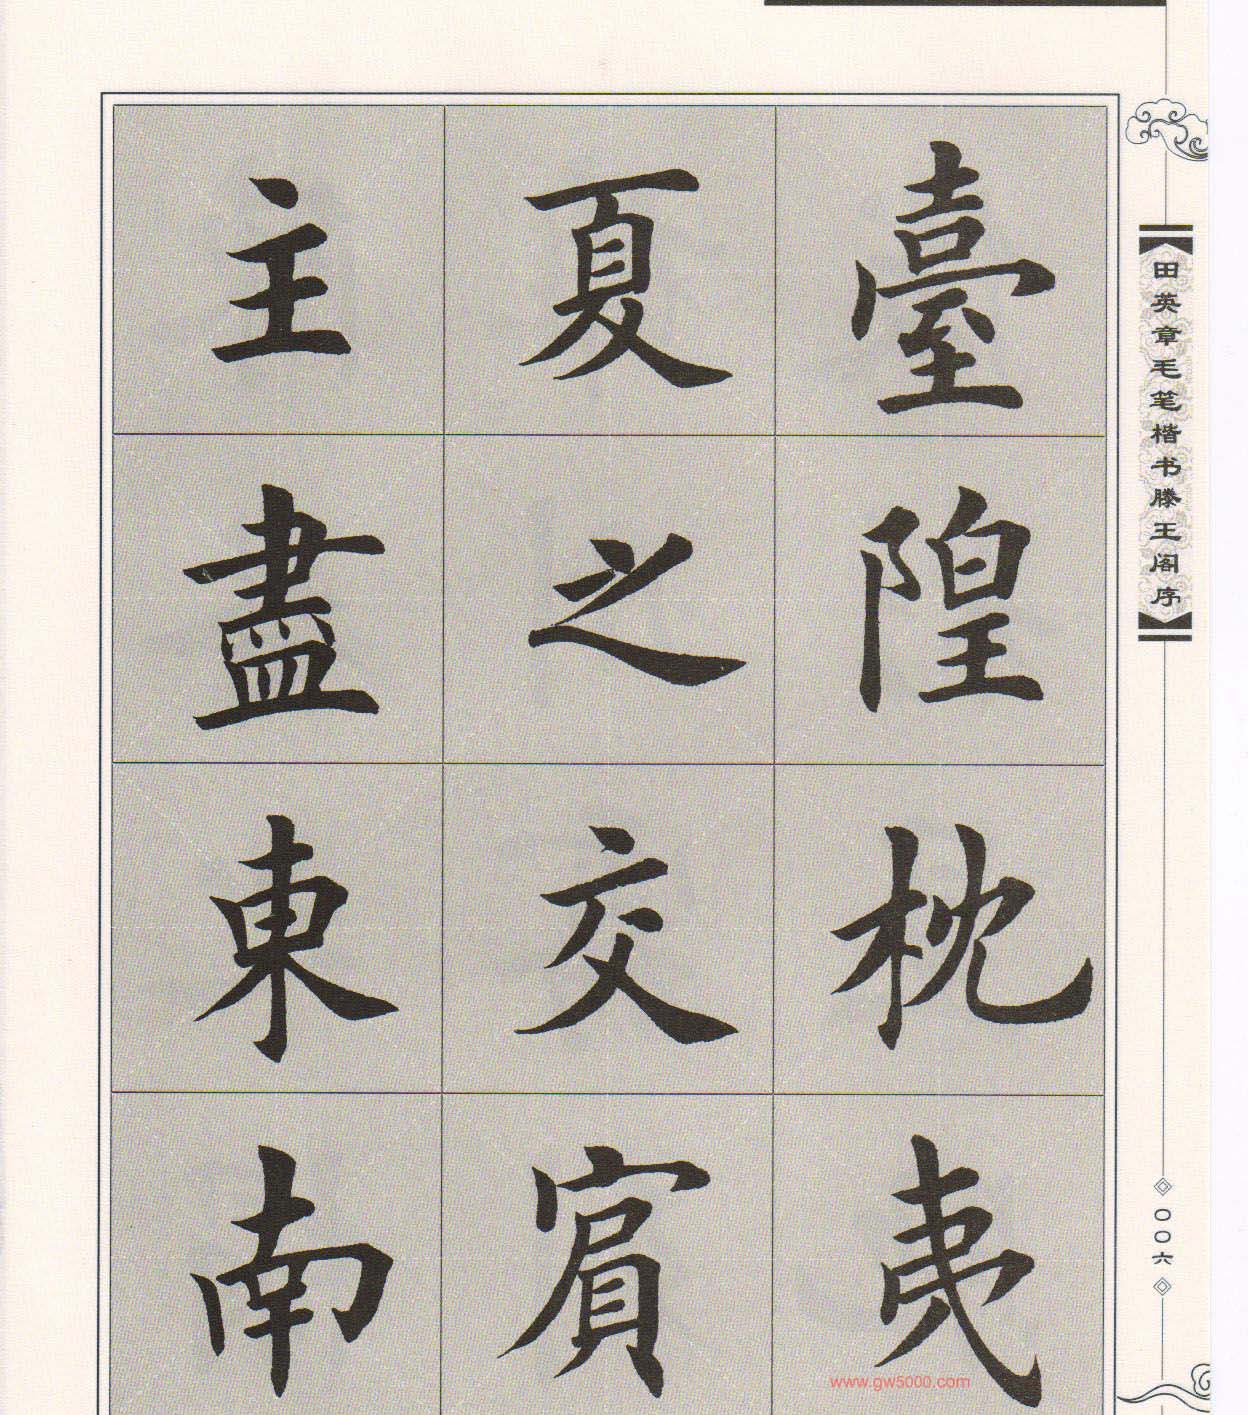 臺隍枕夷
夏之交賓
主盡東南
田英章毛笔楷书滕王阁序
〇〇六
www.gw5000.com